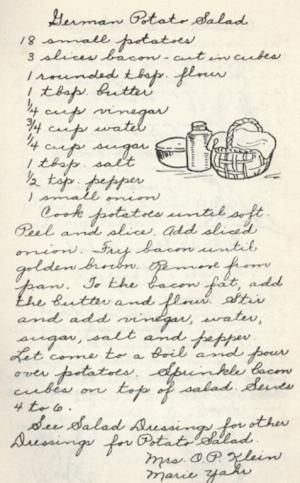 German Potato Salad
18 small potatoes
3 slices bacon - cut in cubes
1 rounded tbsp. flour
1 tbsp. butter
1/4 cup vinegar
3/4 cup water
1/4 cup sugar
1 tbsp. salt
1/2 tsp. pepper
1 small onion
Cook potatoes until soft.
Peel and slice. Add sliced
onion. Fry bacon until
golden brown. Remove from
pan. To the bacon fat, add
the butter and flour. Stir
and add vinegar, water,
sugar, salt and pepper.
Let come to a boil and pour
over potatoes. Sprinkle bacon
cubes on top of salad. Serves
4 to 6.
See Salad Dressings for other
Dressings for Potato Salad.
Mrs. O.P. Klein
Marie Yahr